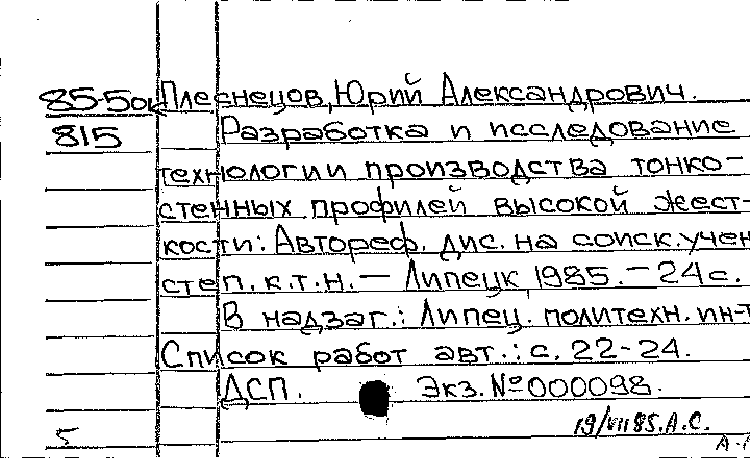 85-5од Плеснецов, Юрий Александрович.
815 Разработка и исследование
технологии производства тонко-
стенных профилей высокой жест-
кости: Автореф. дис. на соиск. учен
степ. к.т.н. — Липецк, 1985. — 24с.
В надзаг.: Липец. политехн. ин-т
Список работ авт.: с. 22-24.
ДСП. Экз. №000098.
19/VII 85. А.С.
5